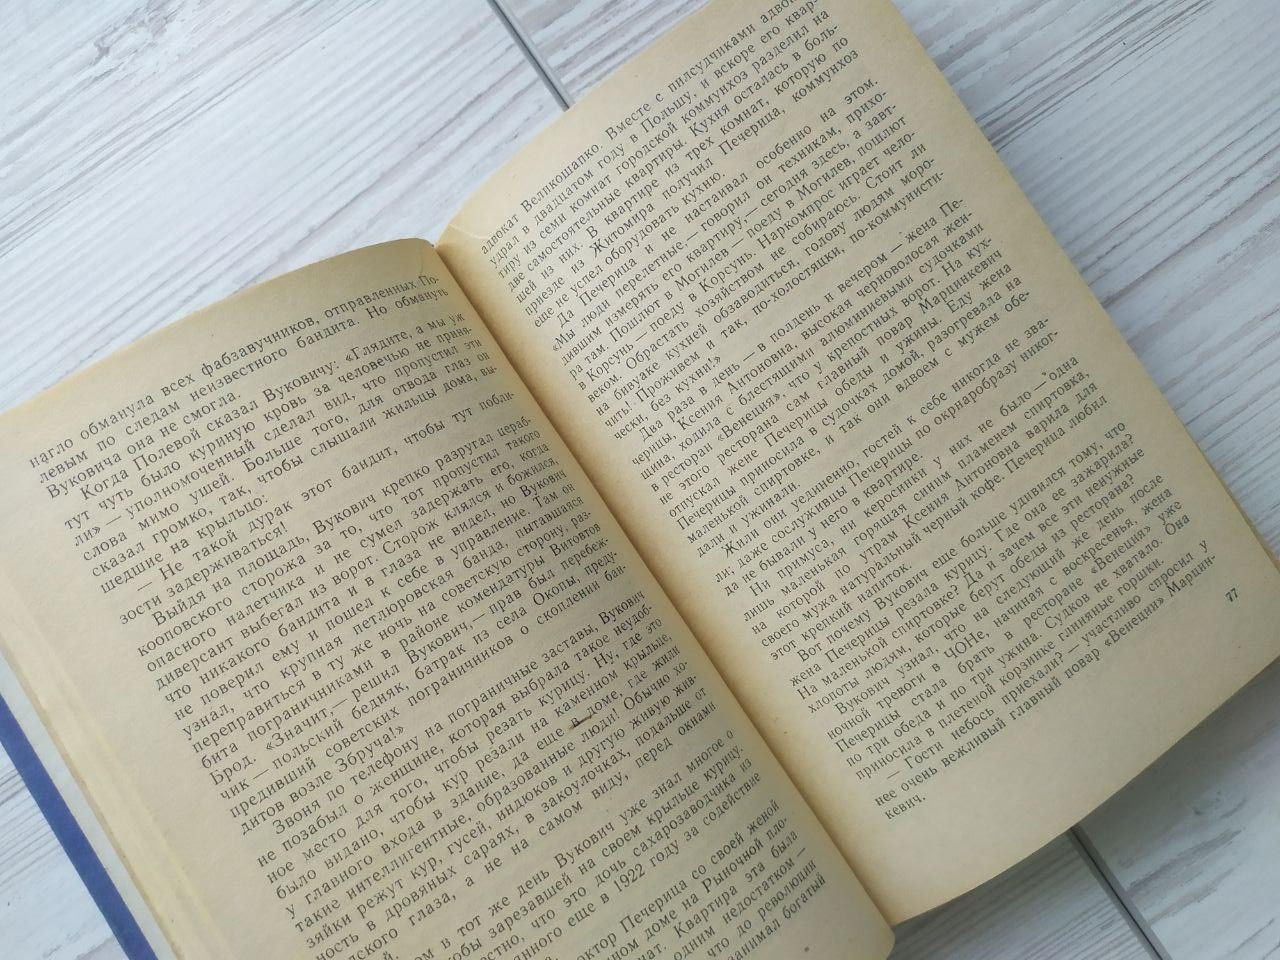 нагло обманула всех фабзавучников, отправленных По-
левым по следам неизвестного бандита. Но обмануть
Вуковича она не смогла.
Когда Полевой сказал Вуковичу: «Глядите, а мы уж
тут чуть было куриную кровь за человечью не приня-
ли» — уполномоченный сделал вид, что пропустил эти
слова мимо ушей. Больше того, для отвода глаз он
сказал громко, так, чтобы слышали жильцы дома, вы-
шедшие на крыльцо:
— Не такой дурак этот бандит, чтобы тут побли-
зости задерживаться!
Выйдя на площадь, Вукович крепко разругал цераб-
кооповского сторожа за то, что тот пропустил такого
опасного налетчика и не сумел задержать его, когда
диверсант выбегал из ворот. Сторож клялся и божился,
что никакого бандита и в глаза не видел, но Вукович
не поверил ему и пошел к себе в управление. Там он
узнал, что крупная петлюровская банда, пытавшаяся
переправиться в ту же ночь на советскую сторону, раз-
бита пограничниками в районе комендатуры Витовтов
Брод. «Значит,— решил Вукович,— прав был перебеж-
чик — польский бедняк, батрак из села Окопы, преду-
предивший советских пограничников о скоплении бан-
дитов возле Збруча!»
Звоня по телефону на пограничные заставы, Вукович
не позабыл о женщине, которая выбрала такое неудоб-
ное место для того, чтобы резать курицу. Ну, где это
было видано, чтобы кур резали на каменном крыльце,
у главного входа в здание, да еще в доме, где жили
такие интеллигентные, образованные люди! Обычно хо-
зяйки режут кур, гусей, индюков и другую живую жив-
ность в дровяных сараях, в закоулочках, подальше от
людского глаза, а не на самом виду, перед окнами
в тот же день Вукович уже знал многое о
якобы зарезавшей на своем крыльце курицу.
что это дочь сахарозаводчика из
еще в 1922 году за содействие
доктор Печерица со своей женой
доме на Рыночной пло-
Квартира эта была
одним недостатком —
что до революции
занимал богатый
адвокат Великошапко. Вместе с пилсудчиками
удрал в двадцатом году в Польшу, и вскоре его квар-
тиру из семи комнат городской коммунхоз разделил на
две самостоятельные квартиры. Кухня осталась в боль-
шей из них. В квартире из трех комнат, которую по
приезде из Житомира получил Печерица, коммунхоз
еще не успел оборудовать кухню.
Да Печерица и не настаивал особенно на этом.
«Мы люди перелетные,— говорил он техникам, прихо-
дившим измерять его квартиру,— сегодня здесь, а завт-
ра там. Пошлют в Могилев — поеду в Могилев, пошлют
в Корсунь — поеду в Корсунь. Наркомпрос играет чело-
веком. Обрастать хозяйством не собираюсь. Стоит ли
на бивуаке кухней обзаводиться, голову людям моро-
чить! Проживем и так, по-холостяцки, по-коммунисти-
чески, без кухни!»
Два раза в день — в полдень и вечером — жена Пе-
черицы, Ксения Антоновна, высокая черноволосая жен-
щина, ходила с блестящими алюминиевыми судочками
в ресторан «Венеция», что у крепостных ворот. На кух-
не этого ресторана сам главный повар Марцинкевич
отпускал жене Печерицы обеды и ужины. Еду жена
Печерицы приносила в судочках домой, разогревала на
маленькой спиртовке, и так они вдвоем с мужем обе-
дали и ужинали.
Жили они уединенно, гостей к себе никогда не зва-
ли; даже сослуживцы Печерицы по окрнаробразу никог-
да не бывали у него в квартире.
Ни примуса, ни керосинки у них не было — одна
лишь маленькая, горящая синим пламенем спиртовка,
на которой по утрам Ксения Антоновна варила для
своего мужа натуральный черный кофе. Печерица любил
этот крепкий напиток.
Вот почему Вукович еще больше удивился тому, что
жена Печерицы резала курицу. Где она ее зажарила?
На маленькой спиртовке? Да и зачем все эти ненужные
хлопоты людям, которые берут обеды из ресторана?
Вукович узнал, что на следующий же день после
ночной тревоги в ЧОНе, начиная с воскресенья, жена
Печерицы стала брать в ресторане «Венеция» уже
по три обеда и по три ужина. Судков не хватало. Она
приносила в плетеной корзинке глиняные горшки.
— Гости небось приехали? — участливо спросил у
нее очень вежливый главный повар «Венеции» Марцин-
кевич.
77